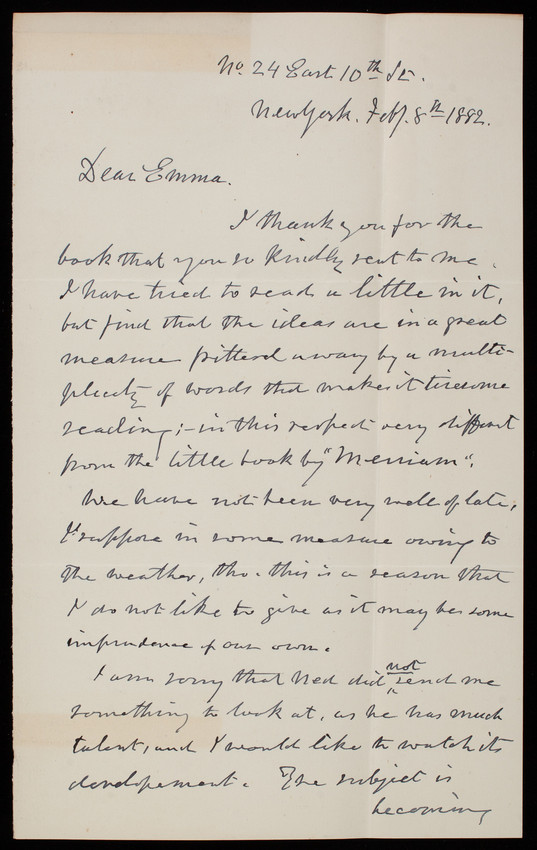 No. 24 East 10th St.
New York. Feby. 8th 1882.
Dear Emma.
I thank you for the
book that you so kindly sent to me.
I have tried to read a little in it,
but find that the ideas are in a great
measure frittered away by a multi-
plicity of words that makes it tiresome
reading; - in this respect very different
from the little book by "Merriam".
We have not been very well of late,
I suppose in some measure owing to
the weather, tho. this is a reason that
I do not like to give as it may be some
imprudence of our own.
I am sorry that Ned did not send me
something to look at, as he has much
talent, and I would like to watch its
developement. The subject is
becoming